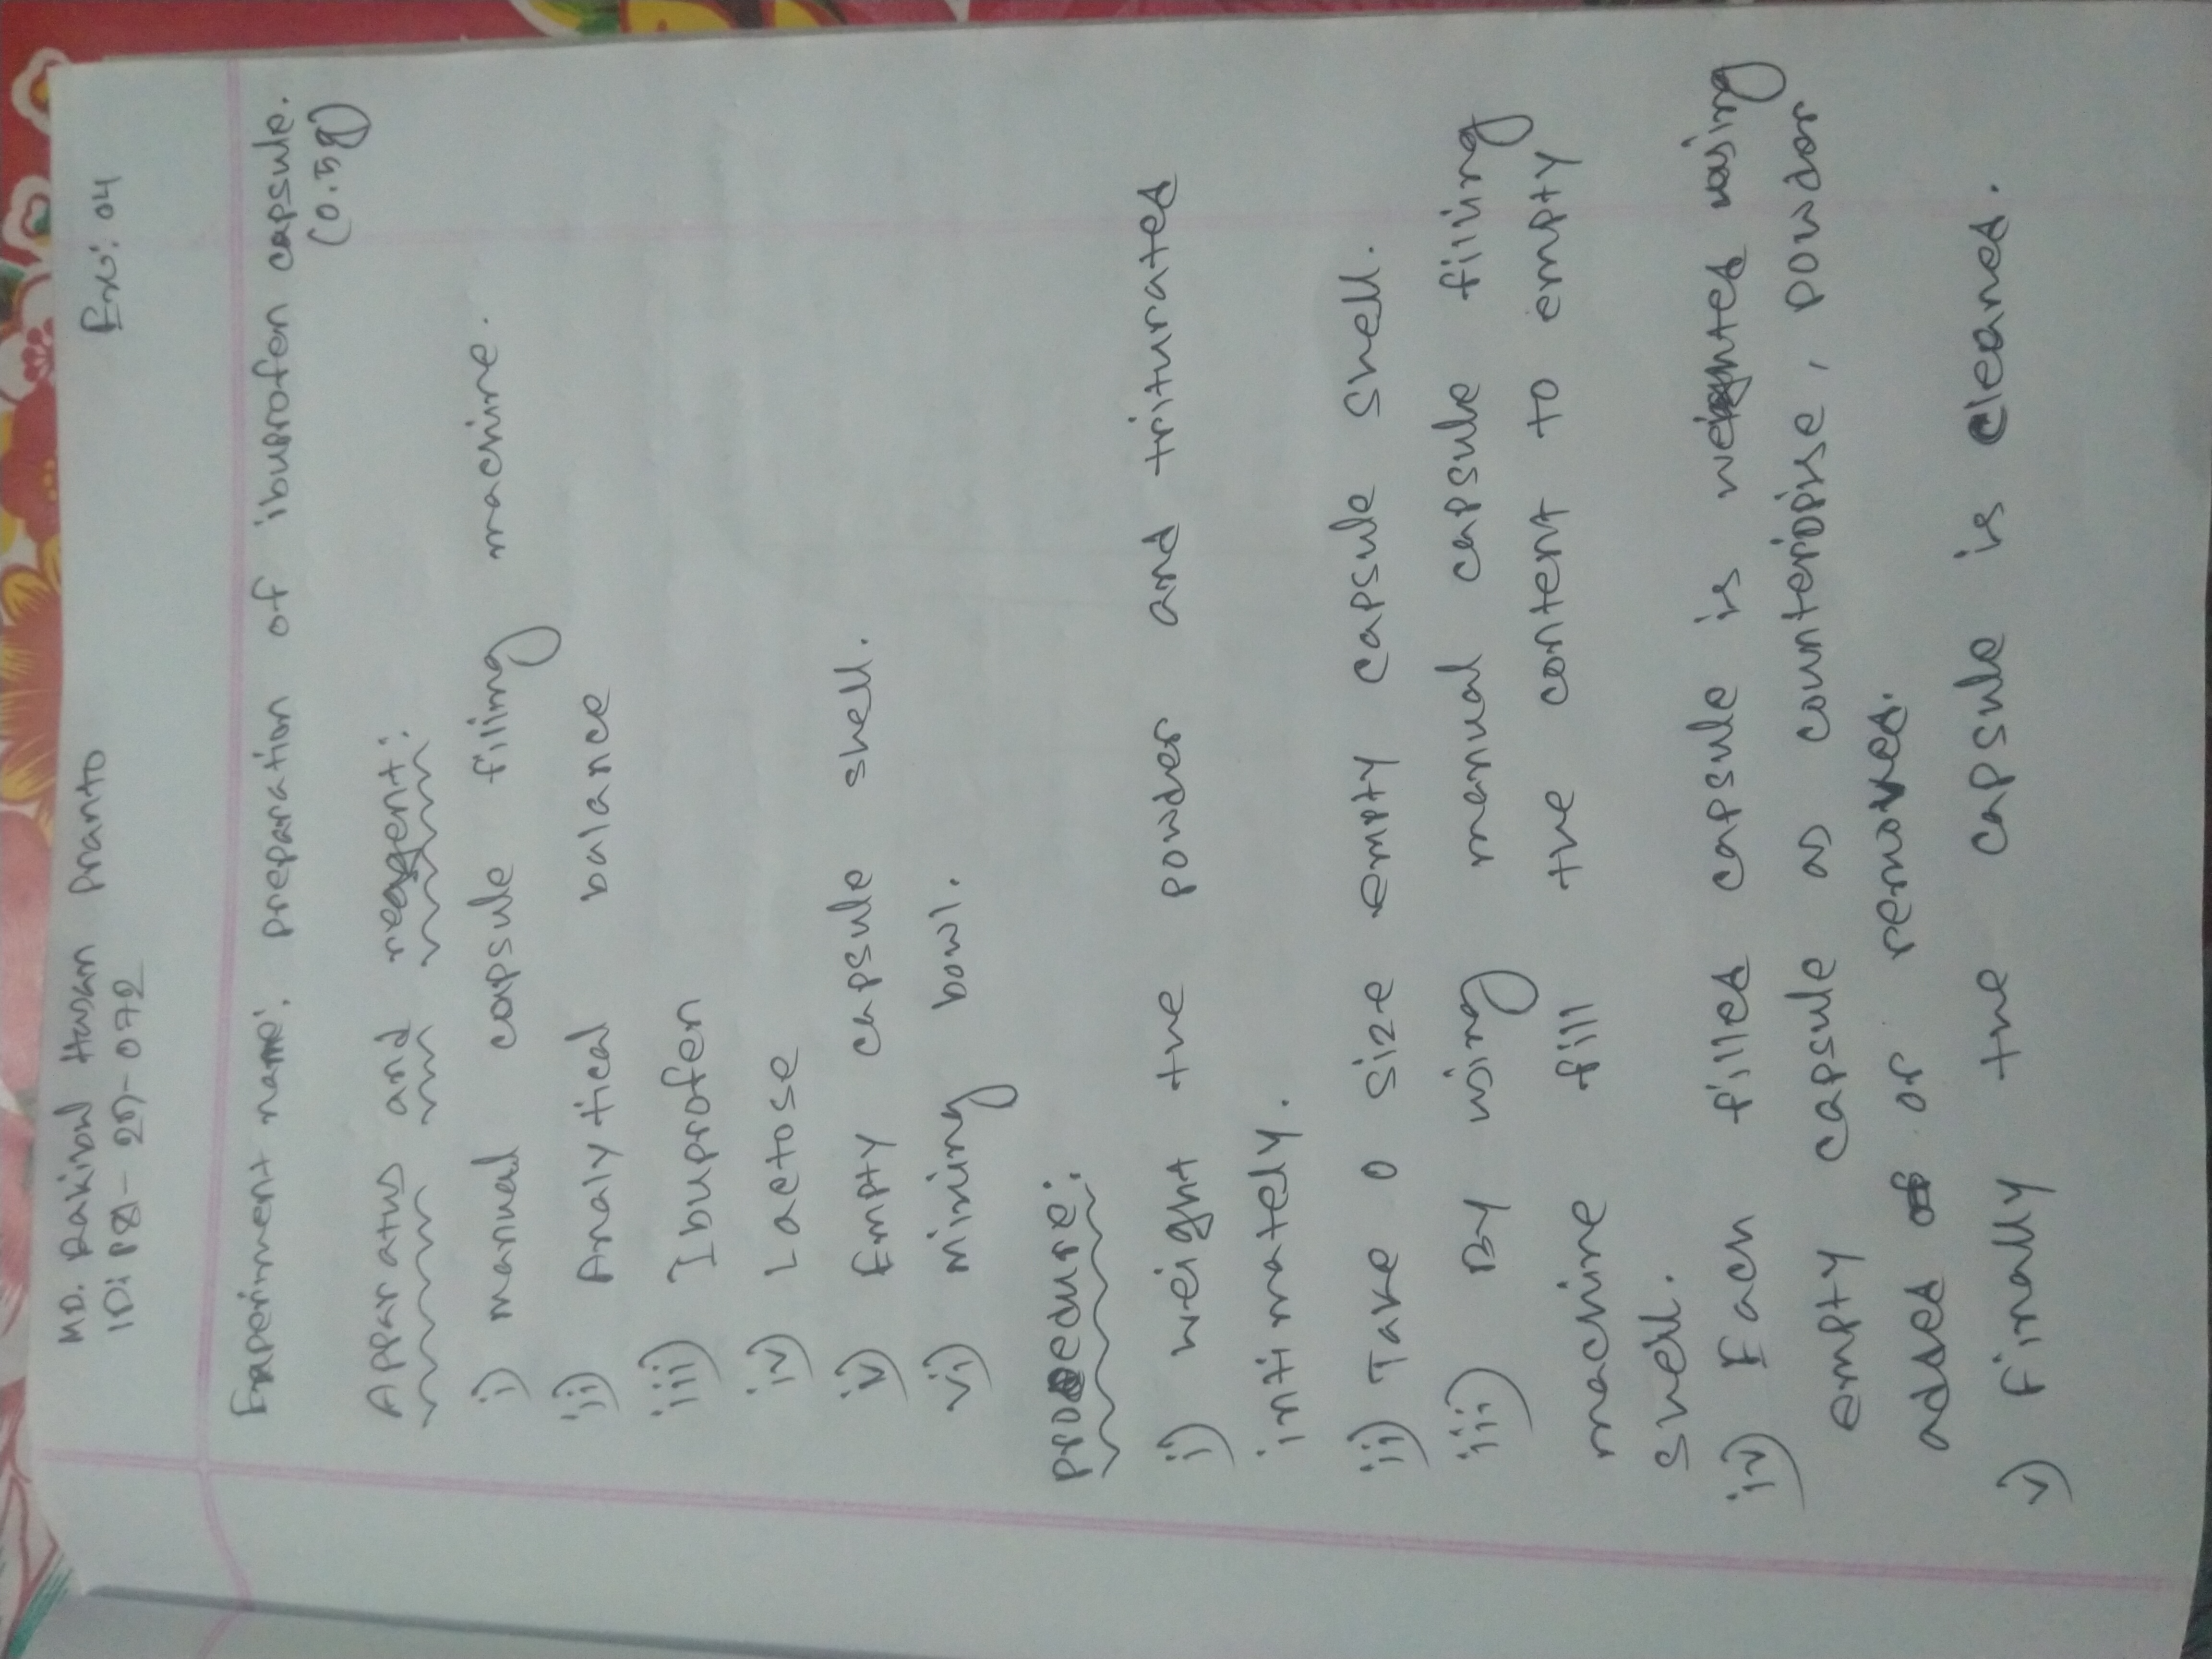 MD. Rakibul Hasan Pranto
Exp: 04
Experiment name: preparation of ibuprofen capsule.
(0.5g)
Apparatus and reagent:
i) manual capsule filing machine.
ii) Analytical balance
iii) Ibuprofen
iv) Lactose
v) Empty capsule shell.
vi) Mixing bowl.
procedure:
i) weight the powder and triturated
intimately.
ii) Take 0 size empty capsule shell.
iii) By using manual capsule filing
machine fill the content to empty
shell.
iv) Each filled capsule is weighted using
empty capsule as counterpoise, powder
added or removed.
v) Finally the capsule is cleaned.